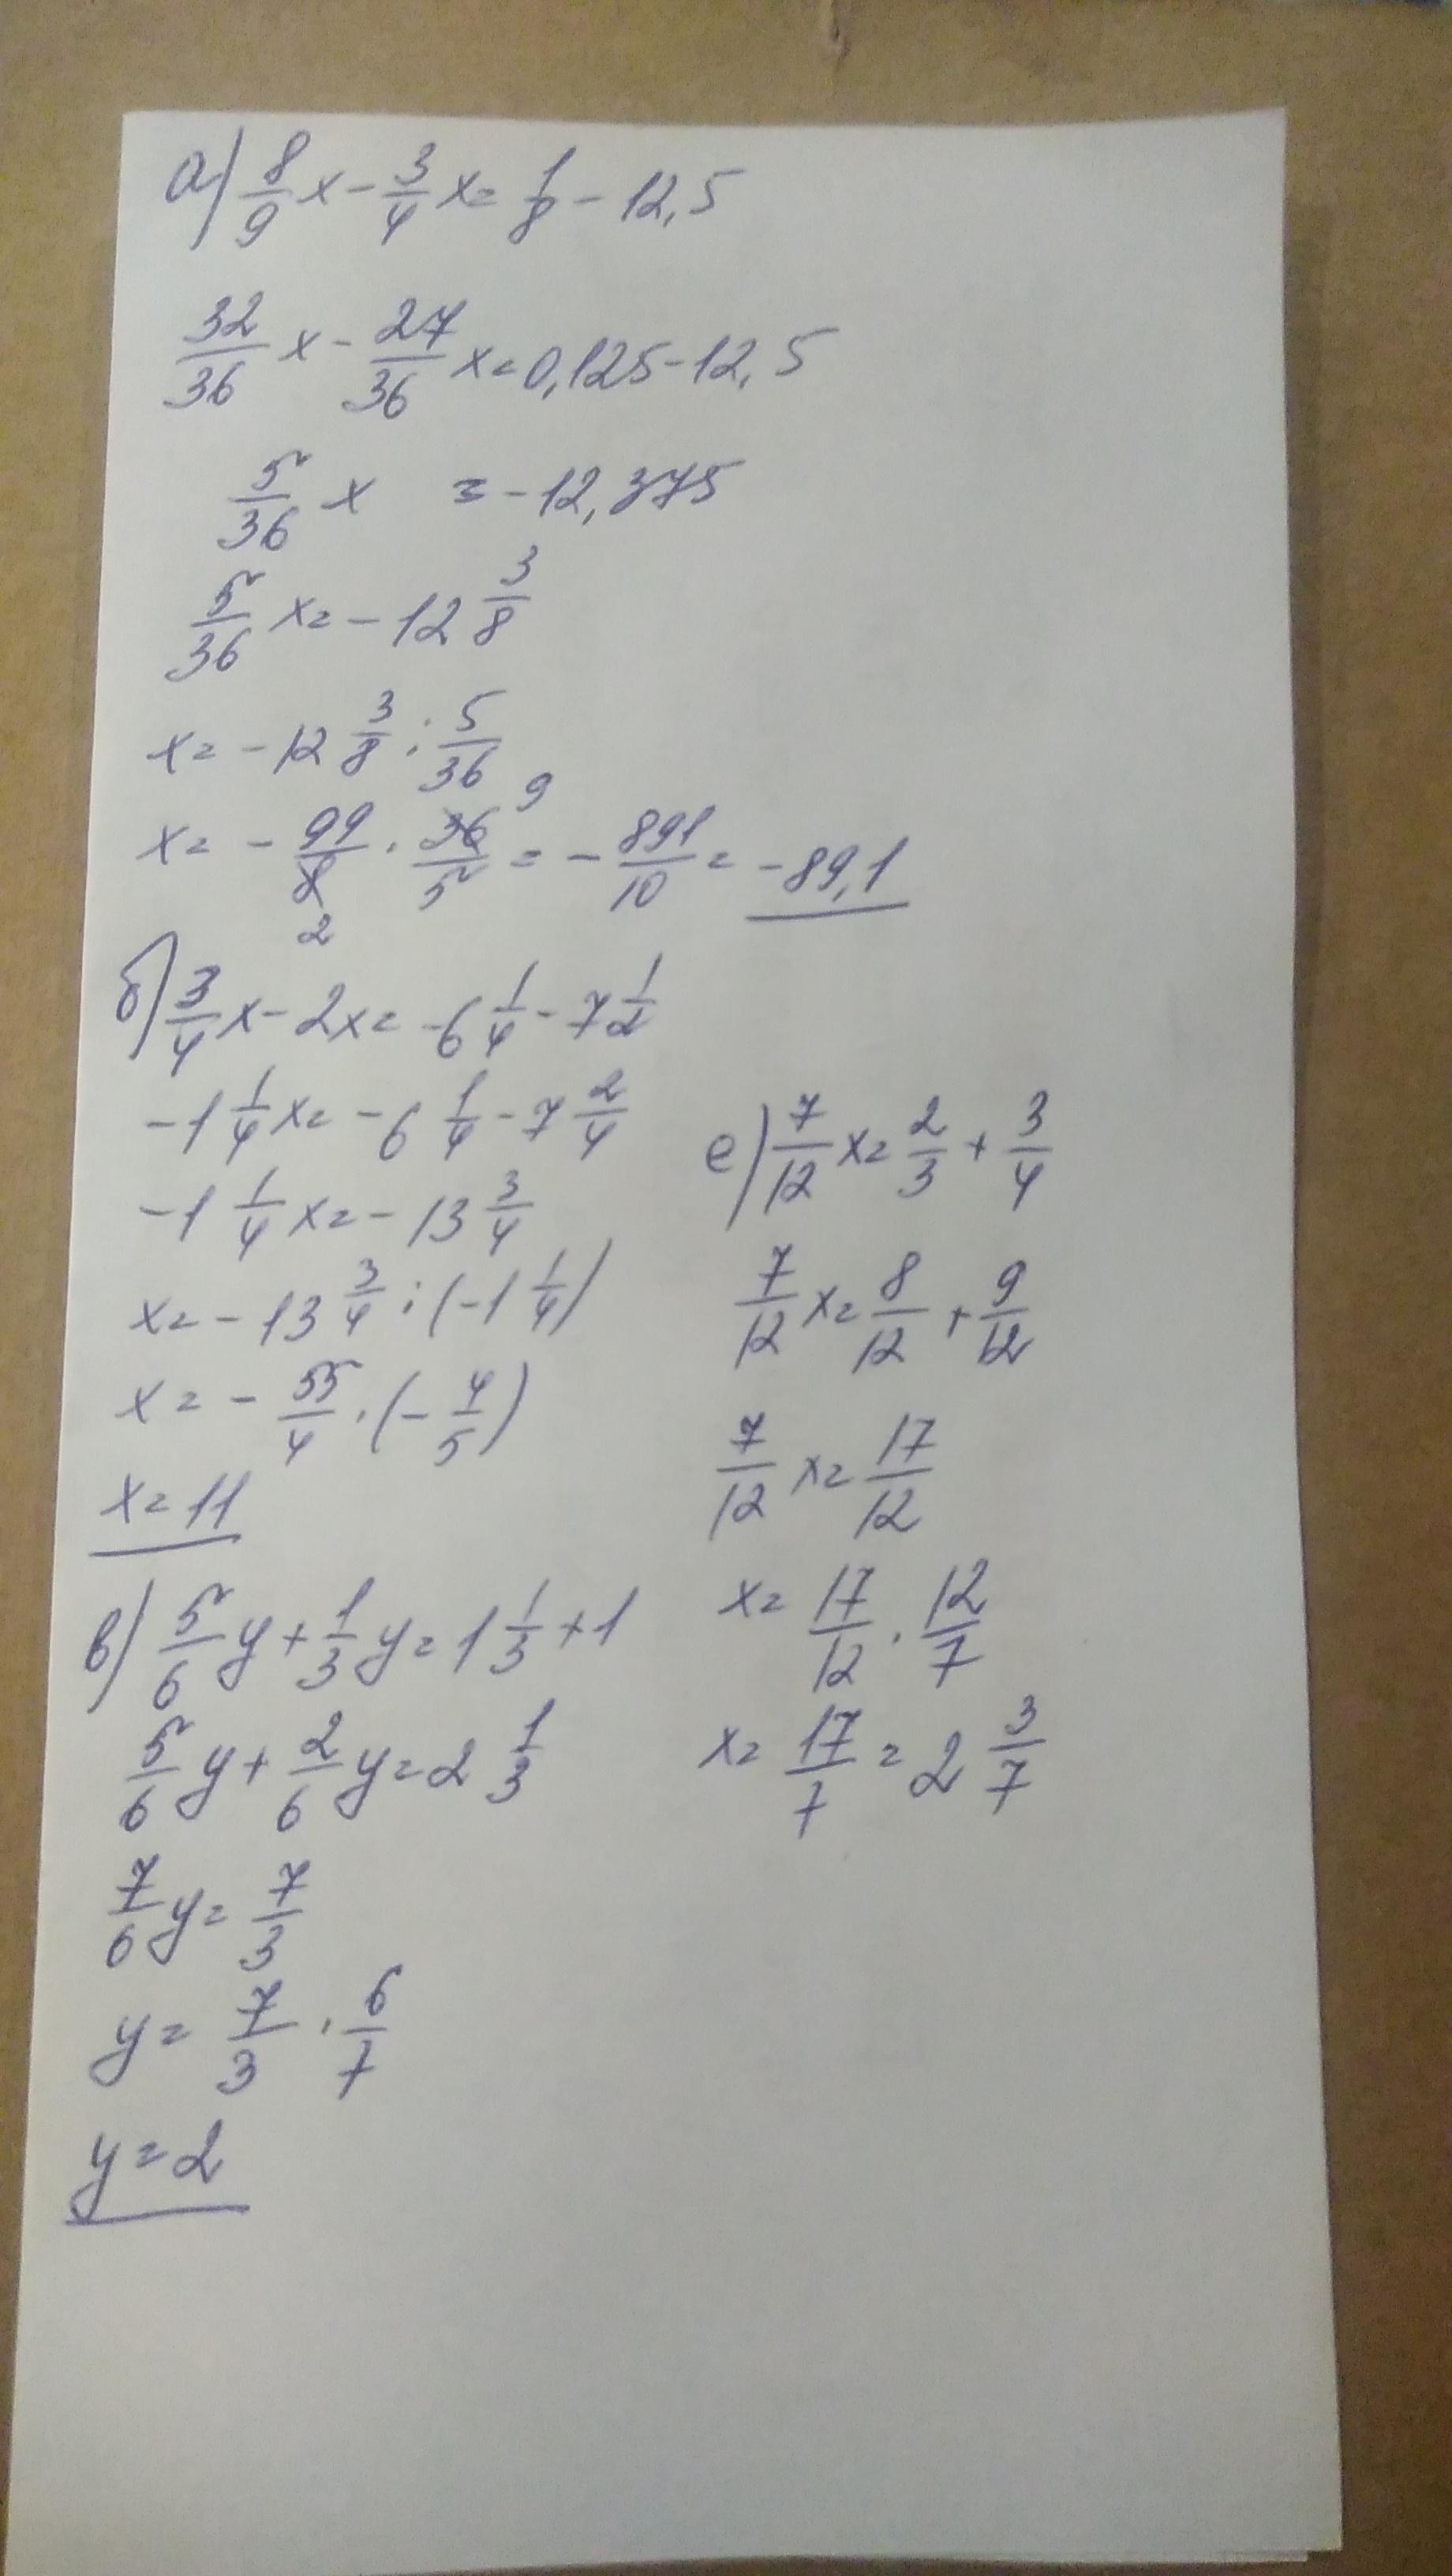 а) 8/9 x - 3/4 x = 1/8 - 12,5
32/36 x - 27/36 x = 0,125 - 12,5
5/36 x = -12,375
5/36 x = -12 3/8
x = -12 3/8 : 5/36
x = - 99/8 · 36/5 = - 891/10 = -89,1
9
2
б) 3/4 x - 2x = -6 1/4 - 7 1/2
-1 1/4 x = -6 1/4 - 7 2/4
-1 1/4 x = -13 3/4
x = -13 3/4 : (-1 1/4)
x = - 55/4 · (- 4/5)
x = 11
в) 5/6 y + 1/3 y = 1 1/3 + 1
5/6 y + 2/6 y = 2 1/3
7/6 y = 7/3
y = 7/3 · 6/7
y = 2
е) 7/12 x = 2/3 + 3/4
7/12 x = 8/12 + 9/12
7/12 x = 17/12
x = 17/12 · 12/7
x = 17/7 = 2 3/7